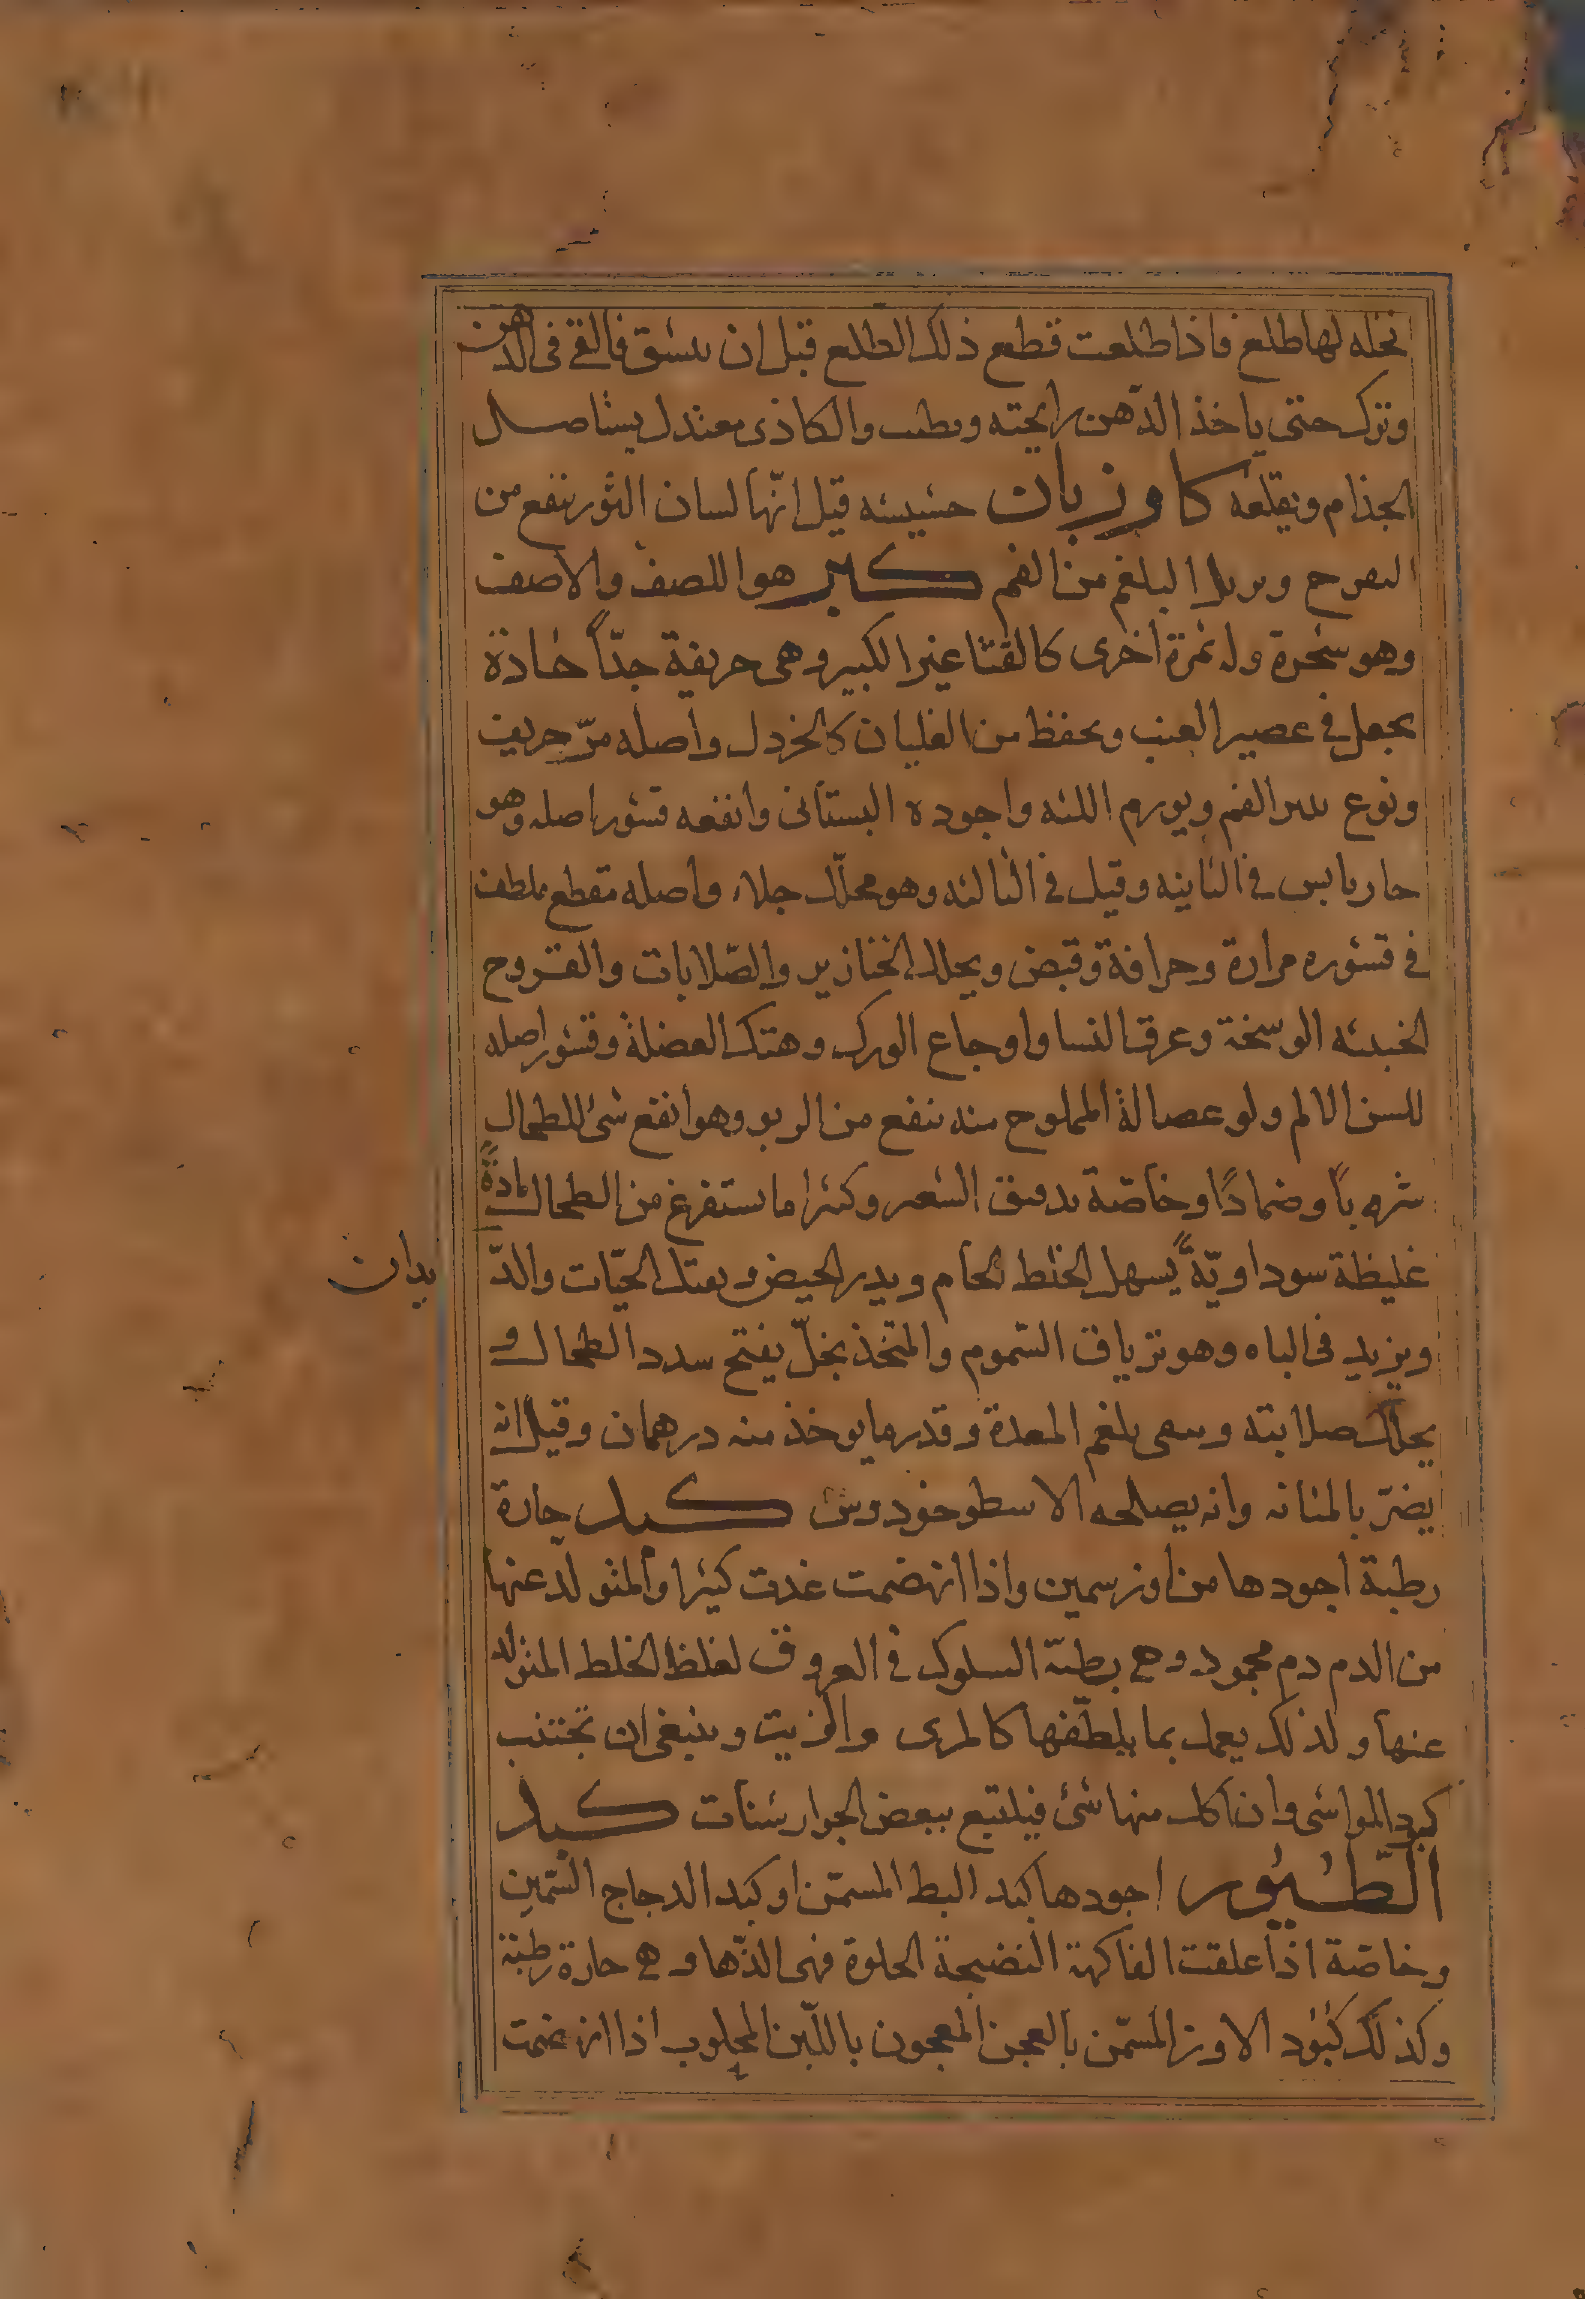 نخله لها طلع فاذا طلعت قطع ذلك الطلع قبل ان ينشق فالقى فى الدهن
وترك حتى ياخذ الدّهن رايحته ويطيب والكاذى معتدل يستاصل
الجذام ويقلعه كاوزبان حشيشه قيل انّها لسان الثور ينفع من
التفرح ويزيل البلغم من الفم كبر هو اللصف والاصف
وهو شجرة وله ثمرة اخرى كالقثا غير الكبير وهى حريفة جدّاً حادة
يجعل فى عصير العنب ويحفظ من الغليان كالخردل واصله مرّ حريف
ونوع يثير الفم ويورم اللثه واجوده البستانى وانفعه قشور اصله وهو
حار يابس فى الثانيه وقيل فى الثالثه وهو محلّل جلاء واصله مقطع ملطف
فى قشوره مرارة وحرافة وقبض ويحلل الخنازير والصّلابات والقروح
الخبيثه الوسخة وعرق النسا واوجاع الورك وهتك العضلة وقشور اصله
للسن الالم ولو عصالة المملوح منه ينفع من الربو وهو انفع شئ للطحال
شرباً وضمادًا وخاصّة بدقيق الشعير وكثيرا ما يستفرغ من الطحال مادةً
غليظة سوداويّةً يسهل الخلط الخام ويدر الحيض ويقتل الحيّات والدّ
يدان
ويزيد فى الباه وهو ترياق السّموم والمتّخذ بخلّ يفتح سدد الطحال و
يحلل صلابته وينقى بلغم المعدة وقدر ما يوخذ منه درهمان وقيل انه
يضرّ بالمثانه وانه يصلحه الاسطوخودوس كبد حارة
رطبة اجودها من اوز سمين واذا انهضمت غذت كثيرا والمتولّد عنها
من الدم دم محمود وهى بطيئة السلوك فى العروق لغلظ الخلط المتولد
عنها ولذلك يعمل بما يلطّفها كالمرى والزيت وينبغى ان تجتنب
كبود المواشى وان اكل منها شئ فيلتبع ببعض الجوارشنات كبد
الطّيُور اجودها كبد البط المسمّن او كبد الدجاج السّمين
وخاصّة اذا علقت الفاكهة النضيجة الحلوة فهى الذّها وهى حارة رطبة
وكذلك كبُود الاوز المسّمن بالعجين المعجون باللّبن المحلوب اذا انهضمت